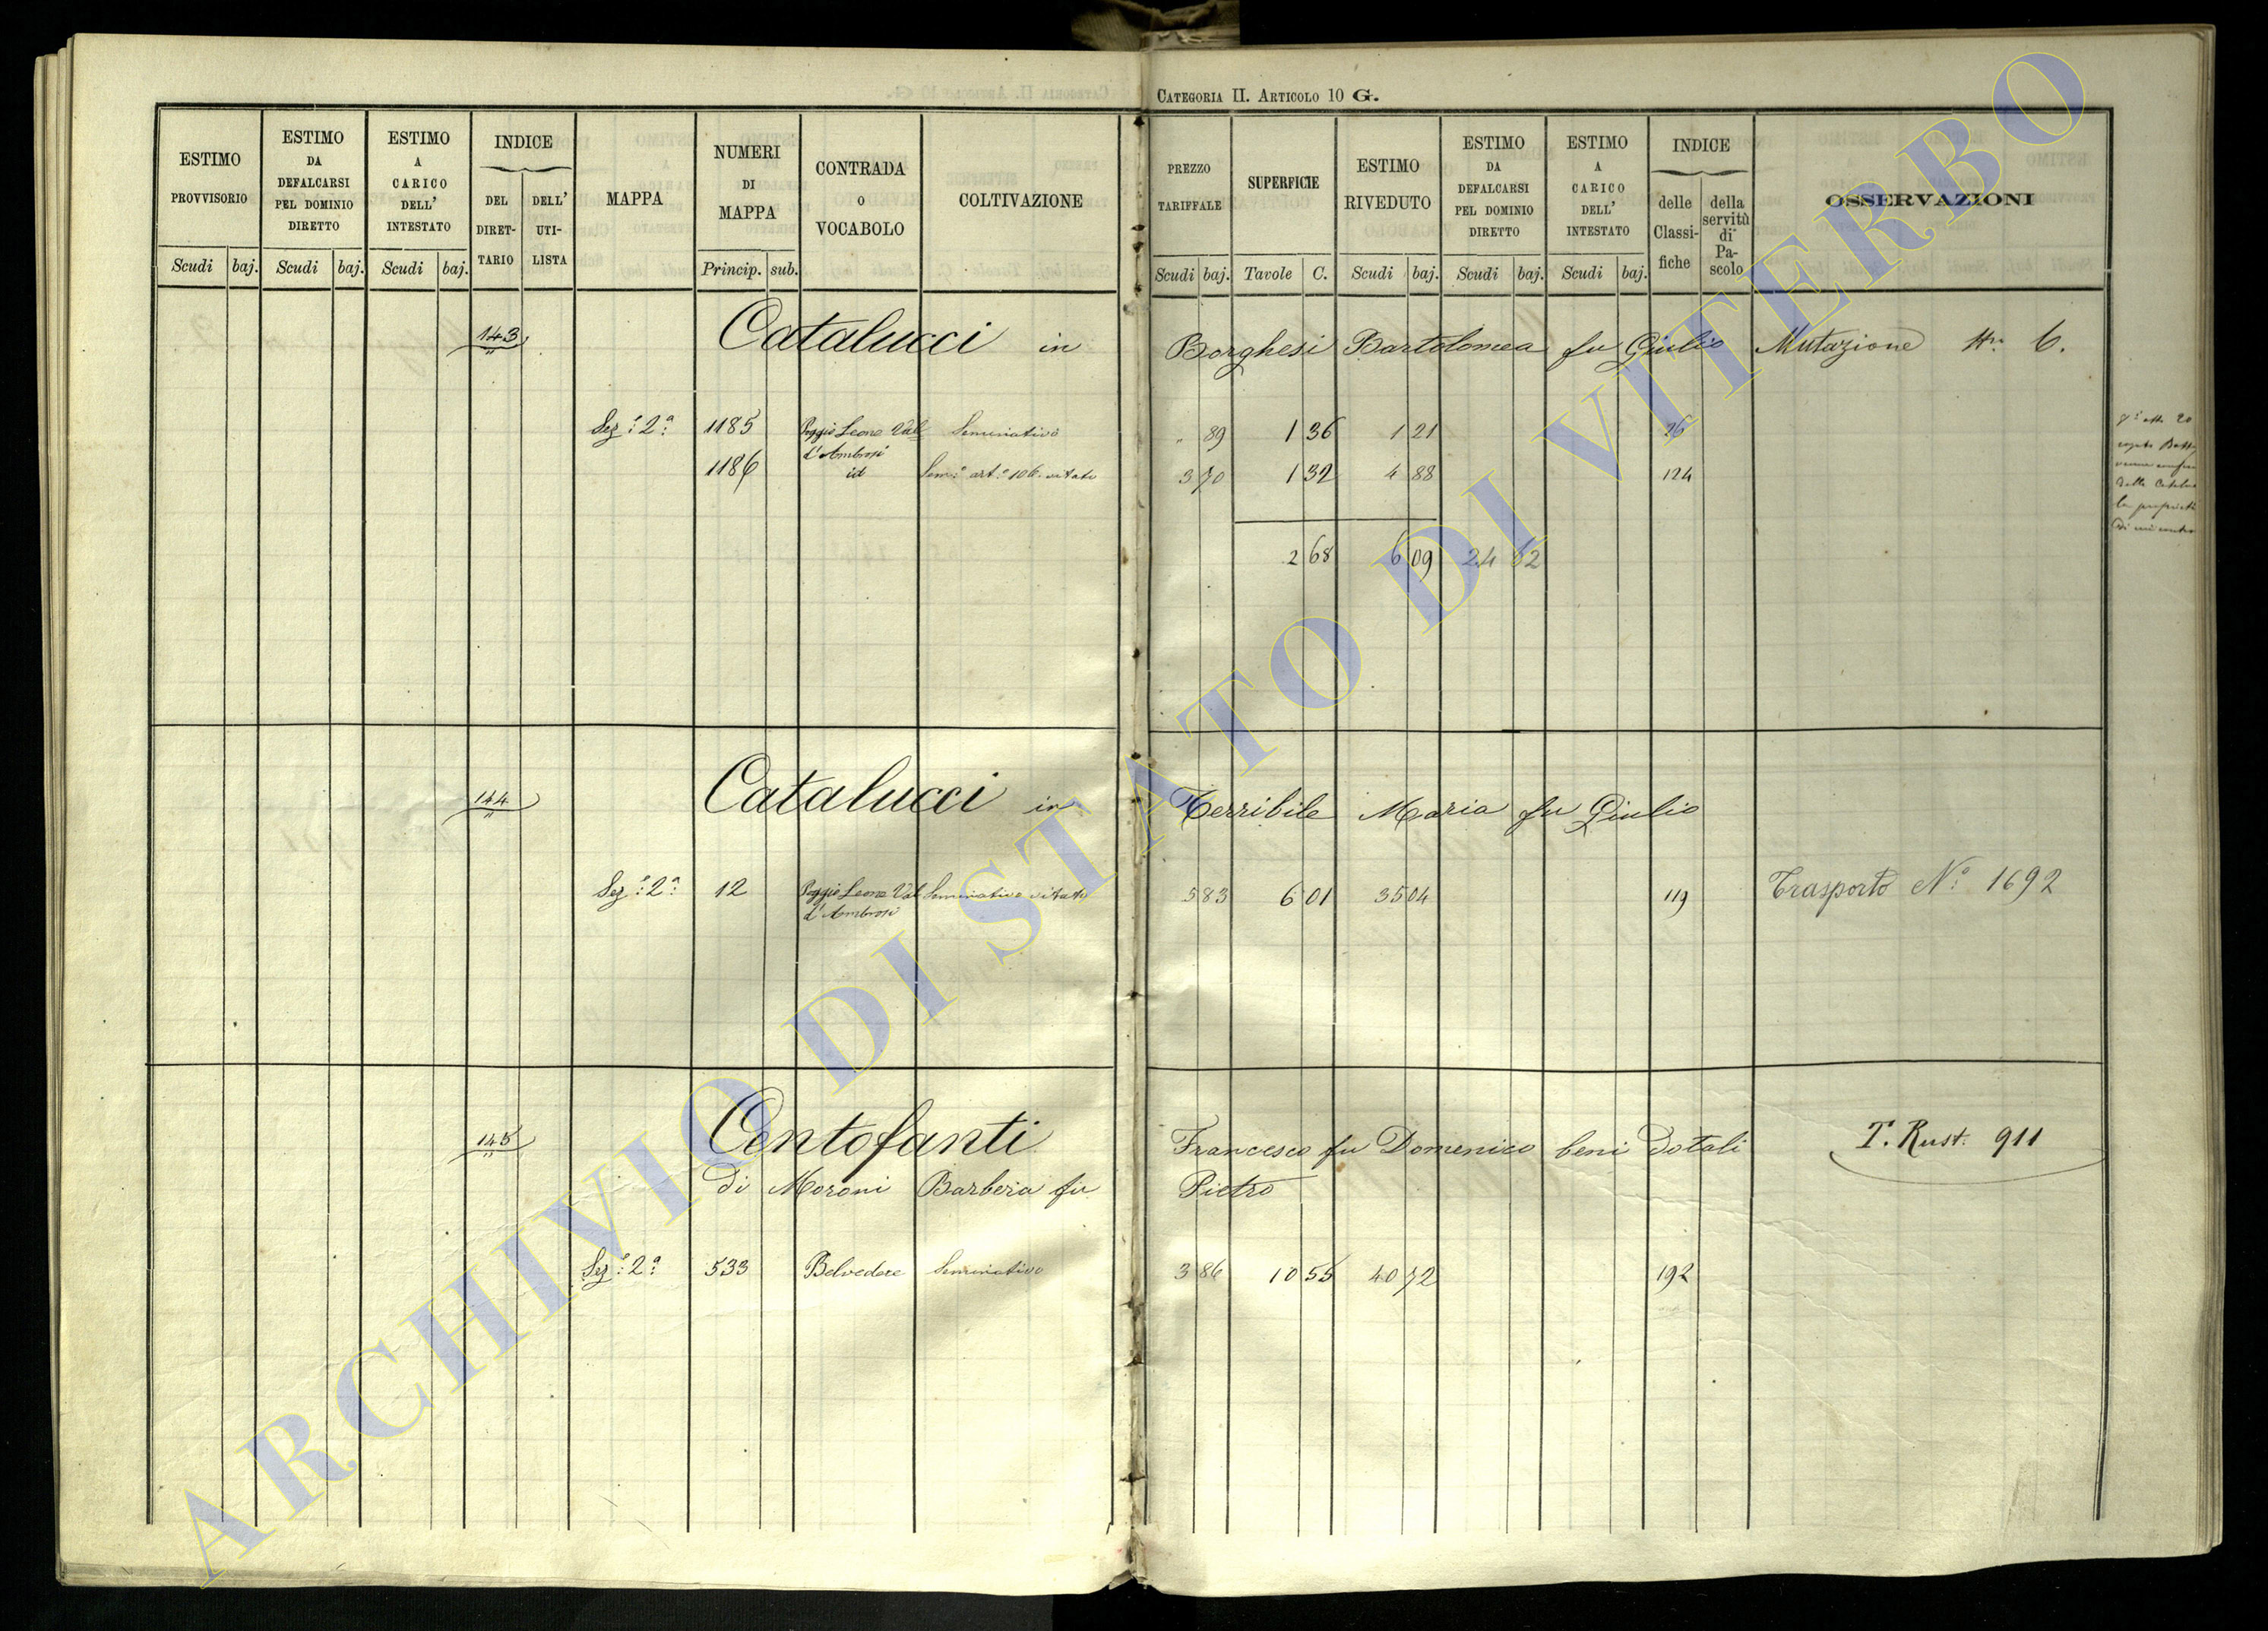 CATEGORIA II. ARTICOLO 10 G.
ESTIMO PROVVISORIO
Scudi baj.
ESTIMO DA DEFALCARSI PEL DOMINIO DIRETTO
Scudi baj.
ESTIMO A CARICO DELL' INTESTATO
Scudi baj.
INDICE
DEL DIRET-TARIO
DELL' UTI-LISTA
MAPPA
NUMERI DI MAPPA
Princip. sub.
CONTRADA O VOCABOLO
COLTIVAZIONE
PREZZO TARIFFALE
Scudi baj.
SUPERFICIE
Tavole C.
ESTIMO RIVEDUTO
Scudi baj.
ESTIMO DA DEFALCARSI PEL DOMINIO DIRETTO
Scudi baj.
ESTIMO A CARICO DELL' INTESTATO
Scudi baj.
INDICE
delle Classi-fiche
della servitù di Pa-scolo
OSSERVAZIONI
143 Catalucci in Borghesi Bartolomea fu Giulio Mutazione Nro 6.
Sez:e 2a: 1185 Poggio Leone Val Seminativo " 89 1 36 1 21 26
d'Ambrosi
1186 id Sem:o art:o 106 vitato 3 70 1 32 4 88 124
2 68 6 09 24 62
144 Catalucci in Terribile Maria fu Giulio
Sez:e 2a: 12 Poggio Leone Val Seminativo vitato 5 83 6 01 35 04 119 Trasporto No: 1692
d'Ambrosi
145 Centofanti Francesco fu Domenico beni dotali T. Rust. 911
di Moroni Barbera fu Pietro
Sez:e 2a: 533 Belvedere Seminativo 3 86 10 55 40 72 192
ARCHIVIO DI STATO DI VITERBO